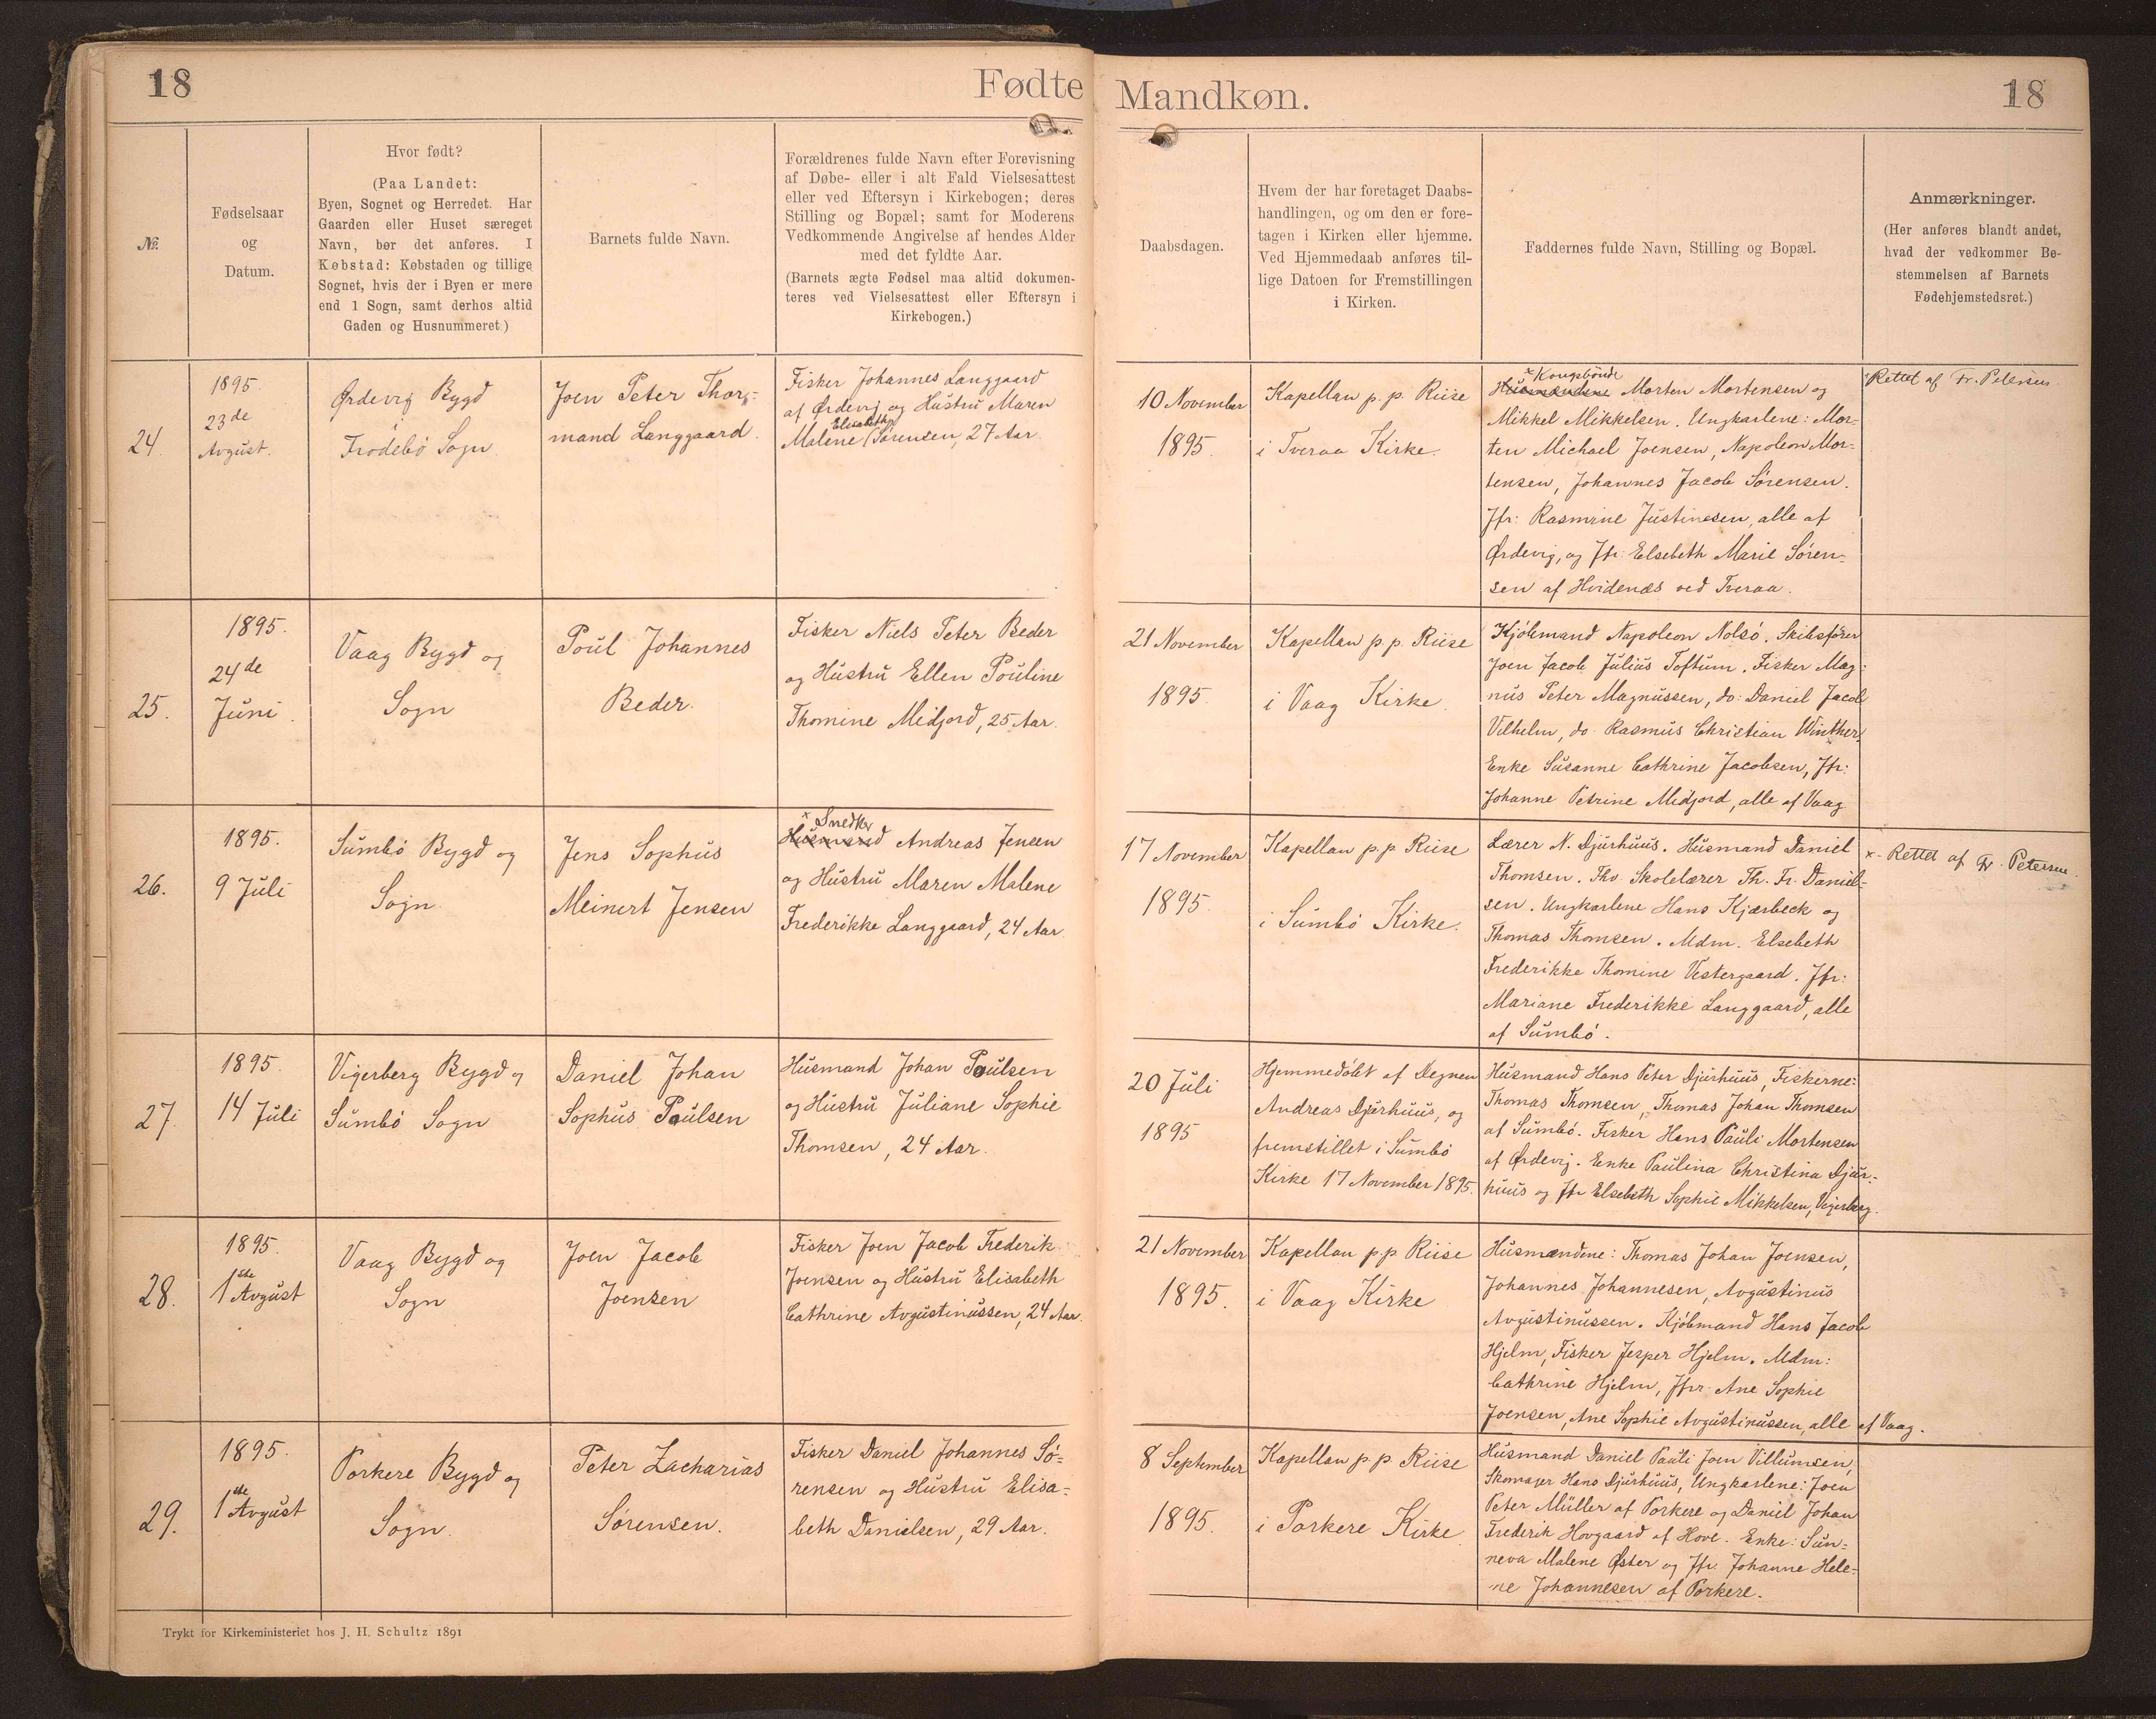 18
Fødte
Mandkøn.
18
№.
Fødselsaar
og
Datum.
Hvor født?
(Paa Landet:
Byen, Sognet og Herredet. Har
Gaarden eller Huset særeget
Navn, bør det anføres. I
Købstad: Købstaden og tillige
Sognet, hvis der i Byen er mere
end 1 Sogn, samt derhos altid
Gaden og Husnummeret.)
Barnets fulde Navn.
Forældrenes fulde Navn efter Forevisning
af Døbe- eller i alt Fald Vielsesattest
eller ved Eftersyn i Kirkebogen; deres
Stilling og Bopæl; samt for Moderens
Vedkommende Angivelse af hendes Alder
med det fyldte Aar.
(Barnets ægte Fødsel maa altid dokumen-
teres ved Vielsesattest eller Eftersyn i
Kirkebogen.)
Daabsdagen.
Hvem der har foretaget Daabs-
handlingen, og om den er fore-
tagen i Kirken eller hjemme.
Ved Hjemmedaab anføres til-
lige Datoen for Fremstillingen
i Kirken.
Faddernes fulde Navn, Stilling og Bopæl.
Anmærkninger.
(Her anføres blandt andet,
hvad der vedkommer Be-
stemmelsen af Barnets
Fødehjemstedsret.)
24.
1895.
23de
Avgust.
Ørdevig Bygd
i
Frodebø Sogn.
Joen Peter Thor-
mand Langgaard.
Fisker Johannes Langgaard
af Ørdevig og Hustru Maren
Elisabeth
Malene (Sørensen, 27 Aar.
10 November
1895.
Kapellan p. p. Riise
i Tveraa Kirke.
x Kongsbønde
Husmændene Morten Mortensen og
Mikkel Mikkelsen. Ungkarlene: Mor-
ten Michael Joensen, Napoleon Mor-
tensen, Johannes Jacob Sørensen.
Jfr: Rasmine Justinesen, alle af
Ørdevig, og Jfr: Elsebeth Marie Søren-
sen af Hvidenæs ved Tveraa.
x Rettet af Fr. Petersen.
25.
1895.
24de
Juni.
Vaag Bygd og
Sogn
Poul Johannes
Beder.
Fisker Niels Peter Beder
og Hustru Ellen Pouline
Thomine Midjord, 25 Aar.
21 November
1895.
Kapellan p. p. Riise
i Vaag Kirke.
Kjøbmand Napoleon Nolsø. Skibsfører
Joen Jacob Julius Toftum. Fisker Mag-
nus Peter Magnussen, do: Daniel Jacob
Vilhelm, do. Rasmus Christian Winther,
Enke Susanne Cathrine Jacobsen, Jfr:
Johanne Petrine Midjord, alle af Vaag
26.
1895.
9 Juli
Sumbø Bygd og
Sogn.
Jens Sophus
Meinert Jensen
x Snedker
Husmand Andreas Jensen
og Hustru Maren Malene
Frederikke Langgaard, 24 Aar.
17 November
1895.
Kapellan p. p. Riise
i Sumbø Kirke.
Lærer N. Djurhuus. Husmand Daniel
Thomsen. Fhv. Skolelærer Th. Fr. Daniel-
sen. Ungkarlene Hans Kjærbeck og
Thomas Thomsen. Mdm. Elsebeth
Frederikke Thomine Vestergaard. Jfr:
Mariane Frederikke Langgaard, alle
af Sumbø.
x. Rettet af Fr. Petersen.
27.
1895.
14 Juli
Vigerberg Bygd og
Sumbø Sogn
Daniel Johan
Sophus Poulsen
Husmand Johan Poulsen
og Hustru Juliane Sophie
Thomsen, 24 Aar.
20 Juli
1895
Hjemmedøbt af Degnen
Andreas Djurhuus, og
fremstillet i Sumbø
Kirke 17 November 1895.
Husmand Hans Peter Djurhuus, Fiskerne:
Thomas Thomsen, Thomas Johan Thomsen
af Sumbø. Fisker Hans Pauli Mortensen
af Ørdevig. Enke Paulina Christina Djur-
huus og Jfr Elsebeth Sophie Mikkelsen, Vigerberg.
28.
1895.
1ste Avgust
Vaag Bygd og
Sogn
Joen Jacob
Joensen
Fisker Joen Jacob Frederik
Joensen og Hustru Elisabeth
Cathrine Avgustinussen, 24 Aar.
21 November
1895.
Kapellan p. p. Riise
i Vaag Kirke
Husmændene: Thomas Johan Joensen,
Johannes Johannesen, Avgustinus
Avgustinussen. Kjøbmand Hans Jacob
Hjelm, Fisker Jesper Hjelm. Mdm:
Cathrine Hjelm, Jfr: Ane Sophie
Joensen, Ane Sophie Avgustinussen, alle af Vaag.
29.
1895.
1ste Avgust
Porkere Bygd og
Sogn.
Peter Zacharias
Sørensen.
Fisker Daniel Johannes Sø-
rensen og Hustru Elisa-
beth Danielsen, 29 Aar.
8 September
1895.
Kapellan p. p. Riise
i Porkere Kirke.
Husmand Daniel Pauli Joen Villumsen,
Skomager Hans Djurhuus, Ungkarlene: Joen
Peter Müller af Porkere og Daniel Johan
Frederik Hovgaard af Hove. Enke: Sun-
neva Malene Øster og Jfr. Johanne Hele-
ne Johannesen af Porkere.
Trykt for Kirkeministeriet hos J. H. Schultz 1891